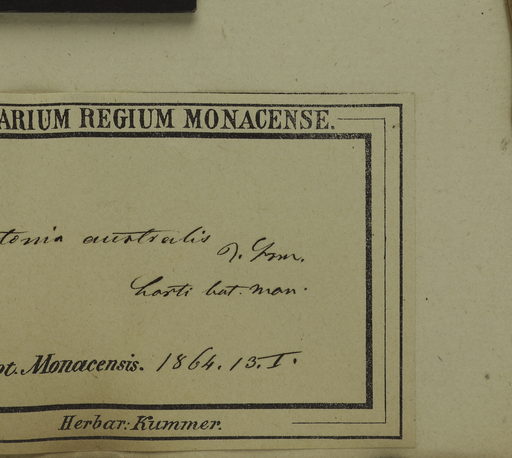 ARIUM REGIUM MONACENSE.
tonia australis
horti bot. mon.
ot. Monacensis. 1864. 13. I.
Herbar: Kummer.